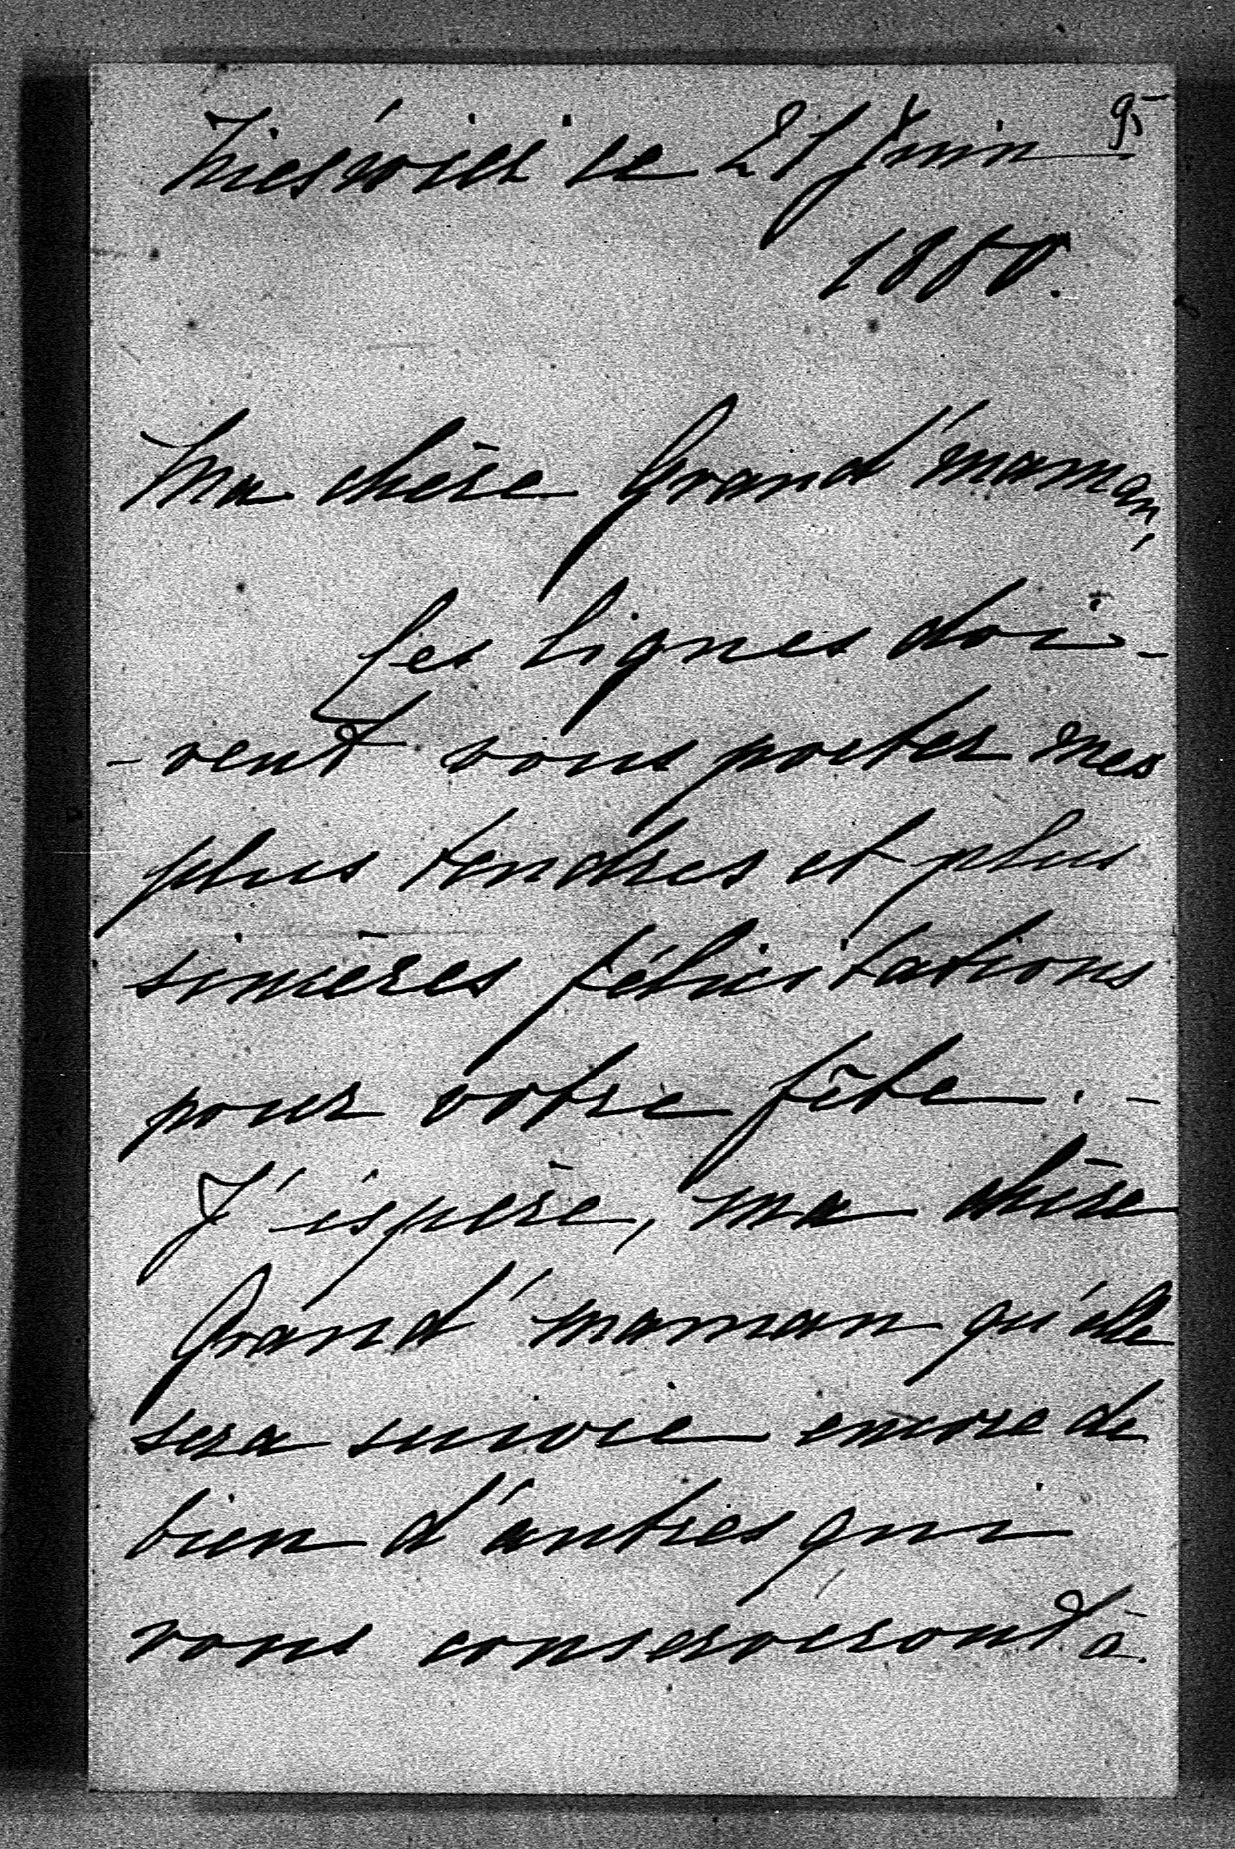 95
Nieśwież le 21 Juin
1880.
Ma chère Grand'maman,
Ces lignes doi-
-vent vous porter mes
plus tendres et plus
sincères félicitations
pour votre fête. -
J'éspère, ma chère
Grand'maman qu'elle
sera suivie encore de
bien d'autres qui
vous conserveront à